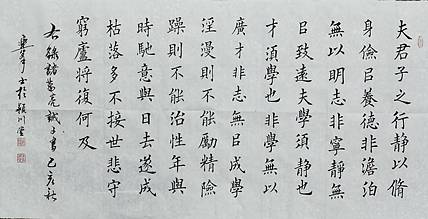 夫君子之行靜以脩
身儉㠯養德非澹泊
無以明志非寧靜無
㠯致遠夫學須靜也
才須學也非學無以
廣才非志無㠯成學
淫漫則不能勵精險
躁則不能治性年與
時馳意與日去遂成
枯落多不接世悲守
窮廬將復何及
右錄諸葛亮誡子書己亥秋
书於潁川堂